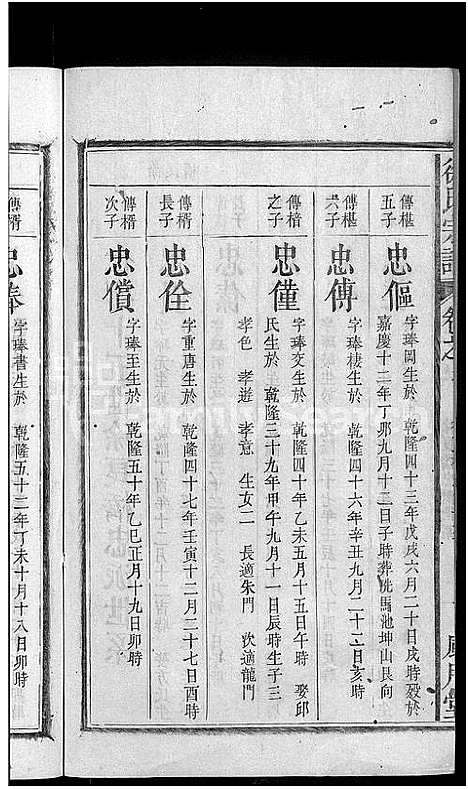 徐氏宗譜
卷之
傳椹
五子
忠傴
字瑧圖生於 乾隆四十三年戊戌六月二十日戌時歿於
嘉慶十二年丁卯九月十二日子時葬洗馬池坤山艮向
傳椹
六子
忠傳
字瑧棲生於 乾隆四十六年辛丑九月二十二日亥時
傳楷
之子
忠僅
字瑧交生於 乾隆四十年乙未五月十五日午時 娶邱
氏生於 乾隆三十九年甲午九月十一日辰時生子三
孝色 孝遊 孝意 生女二 長適朱門 次適龍門
傳楈
長子
忠佺
字重唐生於 乾隆四十七年壬寅十二月二十七日酉時
傳楈
次子
忠償
字瑧至生於 乾隆五十年乙巳正月十九日卯時
傳楈
忠俸
字瑧書生於 乾隆五十二年丁未十月十八日卯時